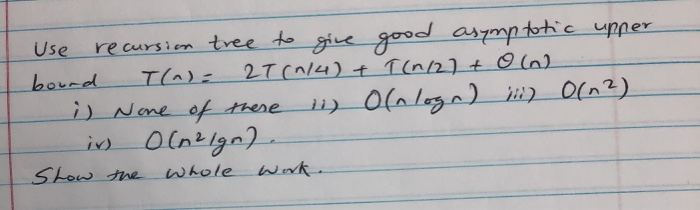 Use recursion tree to give good asymptotic upper
bound T(n) = 2T(n/4) + T(n/2) + Θ(n)
i) None of these ii) O(n logn) iii) O(n²)
iv) O(n²lgn).
Show the whole work.